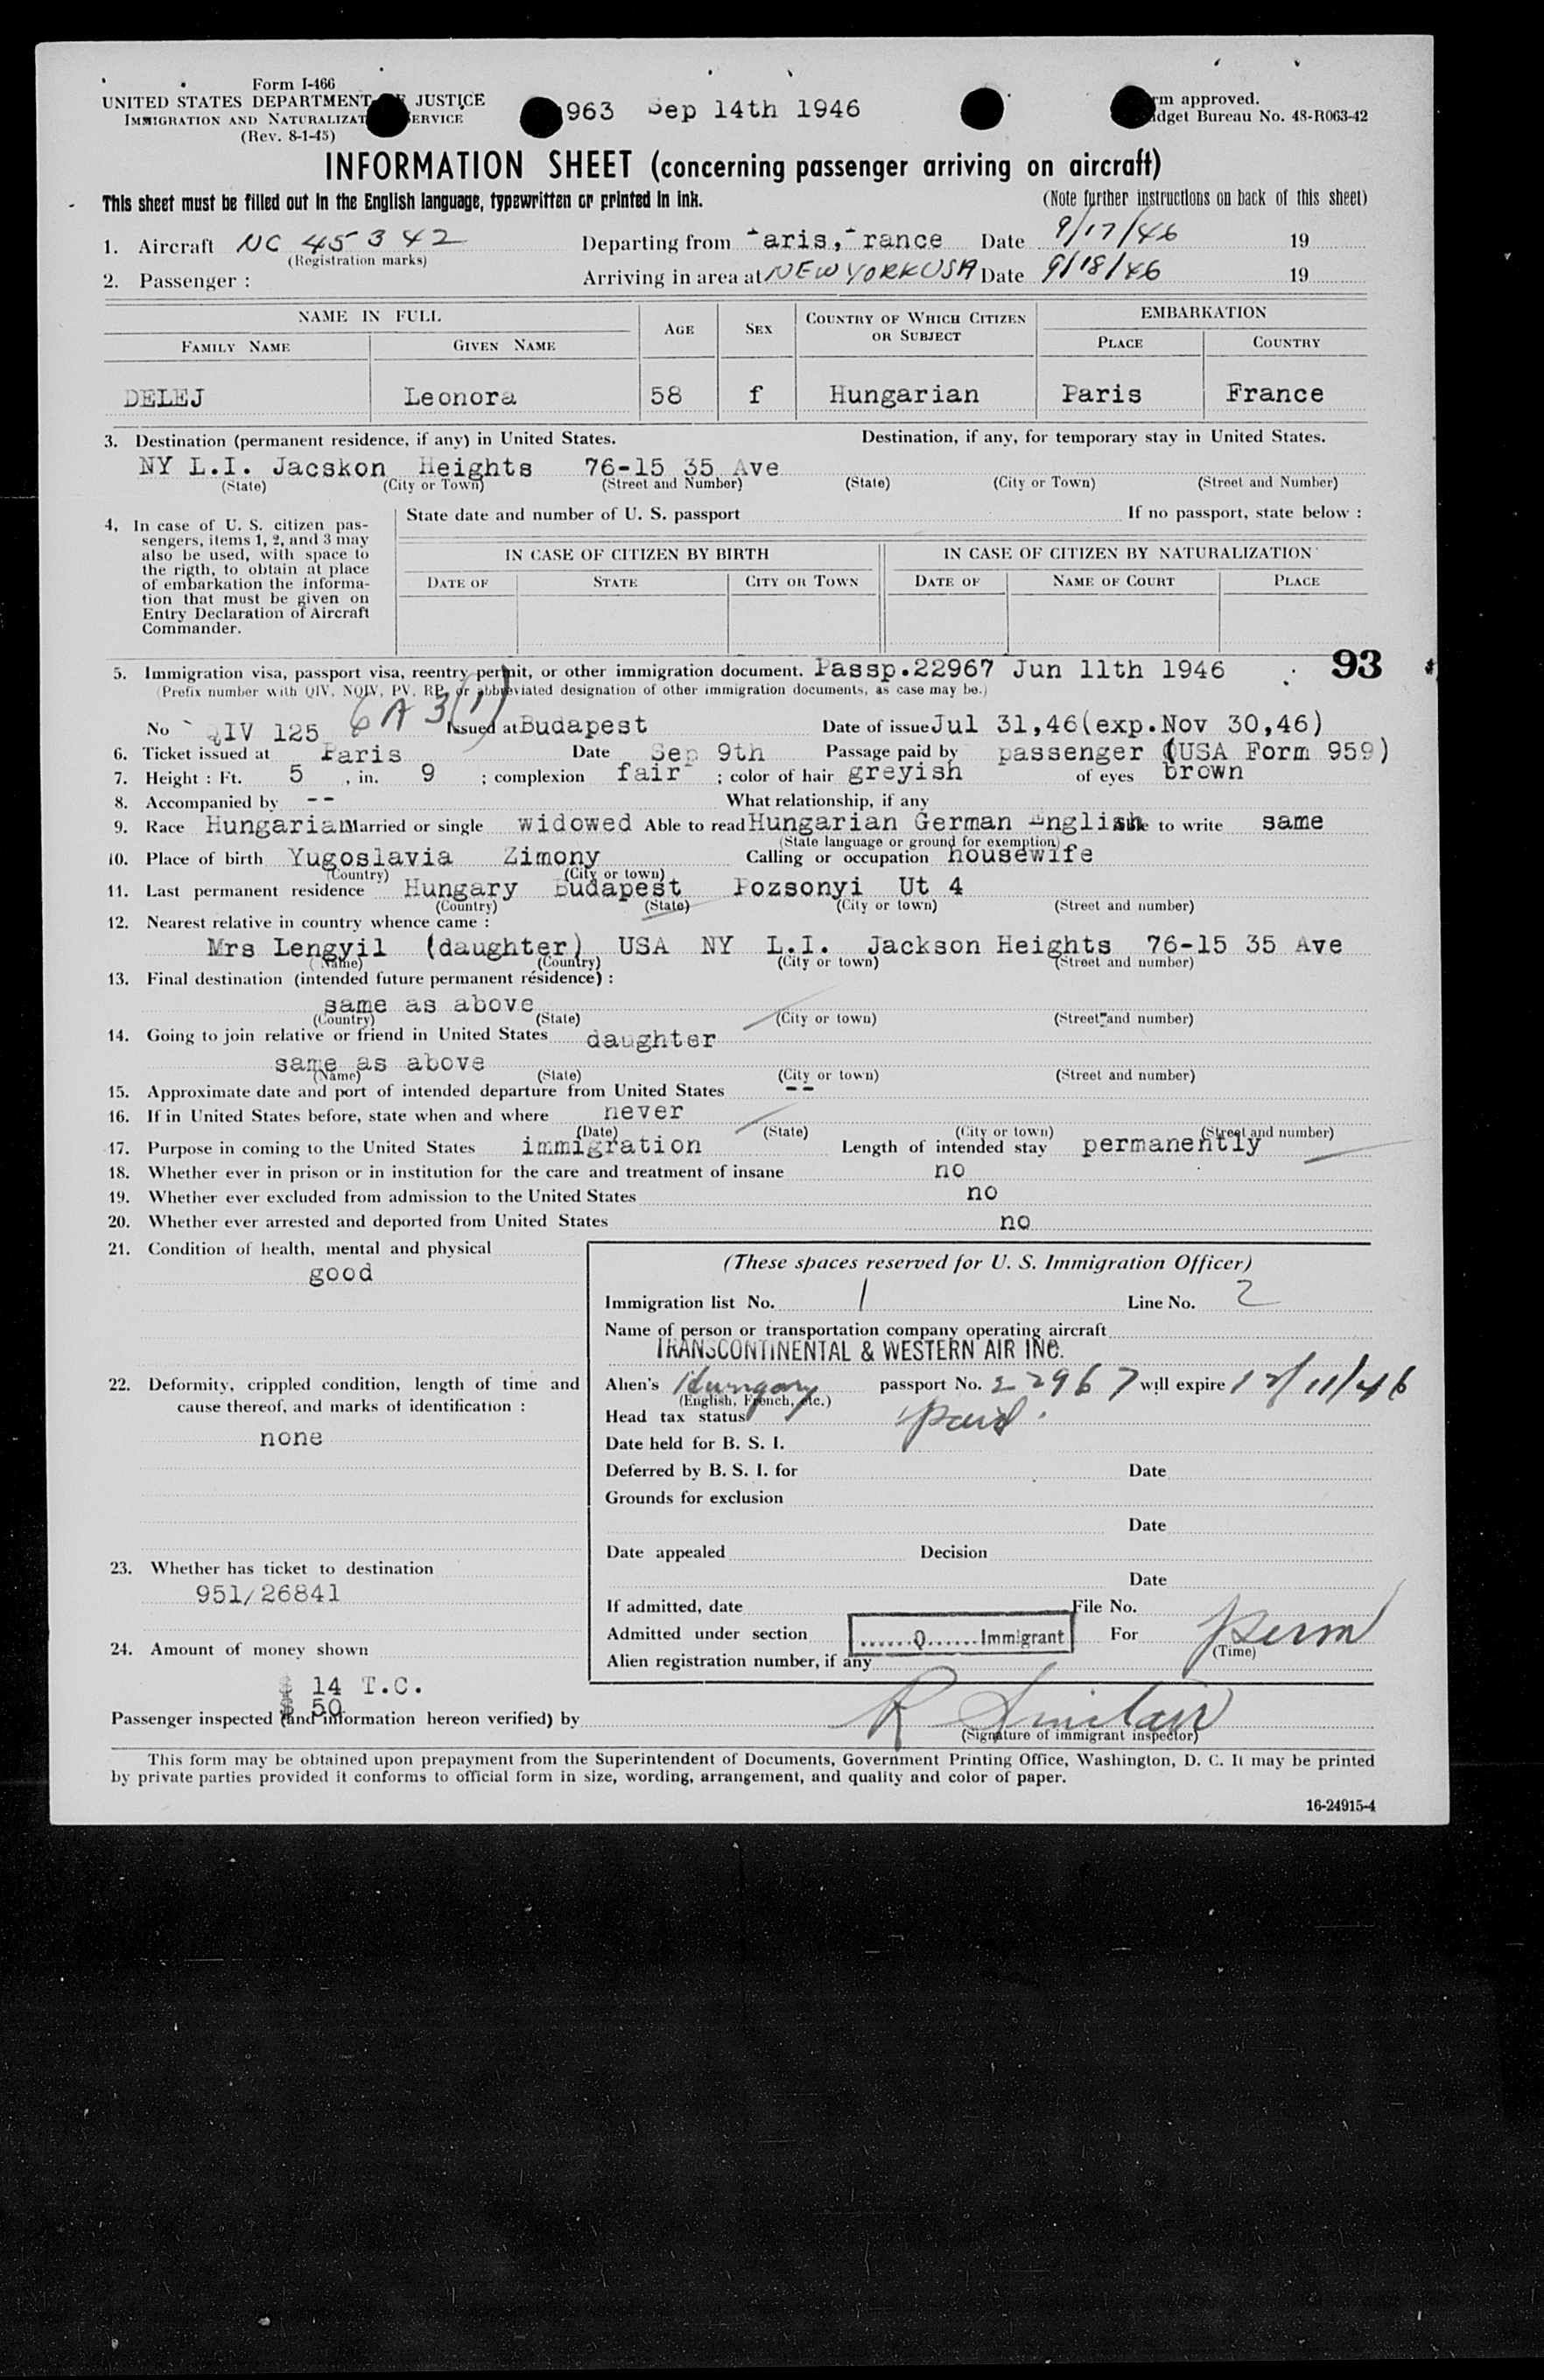 Form I-466
UNITED STATES DEPARTMENT JUSTICE
IMMIGRATION AND NATURALIZAT ERVICE
(Rev. 8-1-45)
963 Sep 14th 1946
rm approved.
dget Bureau No. 48-R063-42
INFORMATION SHEET (concerning passenger arriving on aircraft)
This sheet must be filled out in the English language, typewritten or printed in ink. (Note further instructions on back of this sheet)
1. Aircraft NC 45342 Departing from Paris, France Date 9/17/46 19
(Registration marks)
2. Passenger : Arriving in area at NEW YORK USA Date 9/18/46 19
NAME IN FULL AGE SEX COUNTRY OF WHICH CITIZEN OR SUBJECT EMBARKATION
FAMILY NAME GIVEN NAME PLACE COUNTRY
DELEJ Leonora 58 f Hungarian Paris France
3. Destination (permanent residence, if any) in United States. Destination, if any, for temporary stay in United States.
NY L.I. Jacskon Heights 76-15 35 Ave
(State) (City or Town) (Street and Number) (State) (City or Town) (Street and Number)
4. In case of U. S. citizen pas-
sengers, items 1, 2, and 3 may
also be used, with space to
the rigth, to obtain at place
of embarkation the informa-
tion that must be given on
Entry Declaration of Aircraft
Commander.
State date and number of U. S. passport If no passport, state below :
IN CASE OF CITIZEN BY BIRTH IN CASE OF CITIZEN BY NATURALIZATION
DATE OF STATE CITY OR TOWN DATE OF NAME OF COURT PLACE
5. Immigration visa, passport visa, reentry permit, or other immigration document. Passp.22967 Jun 11th 1946 93
(Prefix number with QIV, NQIV, PV, RP, or abbreviated designation of other immigration documents, as case may be.)
6 A 3(1)
No QIV 125 Issued at Budapest Date of issue Jul 31,46(exp.Nov 30,46)
6. Ticket issued at Paris Date Sep 9th Passage paid by passenger (USA Form 959)
7. Height : Ft. 5 , in. 9 ; complexion fair ; color of hair greyish of eyes brown
8. Accompanied by -- What relationship, if any
9. Race Hungarian Married or single widowed Able to read Hungarian German English Able to write same
(State language or ground for exemption)
10. Place of birth Yugoslavia Zimony Calling or occupation housewife
(Country) (City or town)
11. Last permanent residence Hungary Budapest Pozsonyi Ut 4
(Country) (State) (City or town) (Street and number)
12. Nearest relative in country whence came :
Mrs Lengyil (daughter) USA NY L.I. Jackson Heights 76-15 35 Ave
(Name) (Country) (City or town) (Street and number)
13. Final destination (intended future permanent résidence) :
same as above
(Country) (State) (City or town) (Street and number)
14. Going to join relative or friend in United States daughter
same as above
(Name) (State) (City or town) (Street and number)
15. Approximate date and port of intended departure from United States --
16. If in United States before, state when and where never
(Date) (State) (City or town) (Street and number)
17. Purpose in coming to the United States immigration Length of intended stay permanently
18. Whether ever in prison or in institution for the care and treatment of insane no
19. Whether ever excluded from admission to the United States no
20. Whether ever arrested and deported from United States no
21. Condition of health, mental and physical
good
22. Deformity, crippled condition, length of time and
cause thereof, and marks of identification :
none
23. Whether has ticket to destination
951/26841
24. Amount of money shown
$ 14 T.C.
$ 50
(These spaces reserved for U. S. Immigration Officer)
Immigration list No. 1 Line No. 2
Name of person or transportation company operating aircraft
TRANSCONTINENTAL & WESTERN AIR INC.
Alien's Hungary passport No. 22967 will expire 12/11/46
(English, French, etc.)
Head tax status paid.
Date held for B. S. I.
Deferred by B. S. I. for Date
Grounds for exclusion
Date
Date appealed Decision
Date
If admitted, date File No.
Admitted under section ......Q......Immigrant For Perm
(Time)
Alien registration number, if any
Passenger inspected (and information hereon verified) by R Sinclair
(Signature of immigrant inspector)
This form may be obtained upon prepayment from the Superintendent of Documents, Government Printing Office, Washington, D. C. It may be printed
by private parties provided it conforms to official form in size, wording, arrangement, and quality and color of paper.
16-24915-4